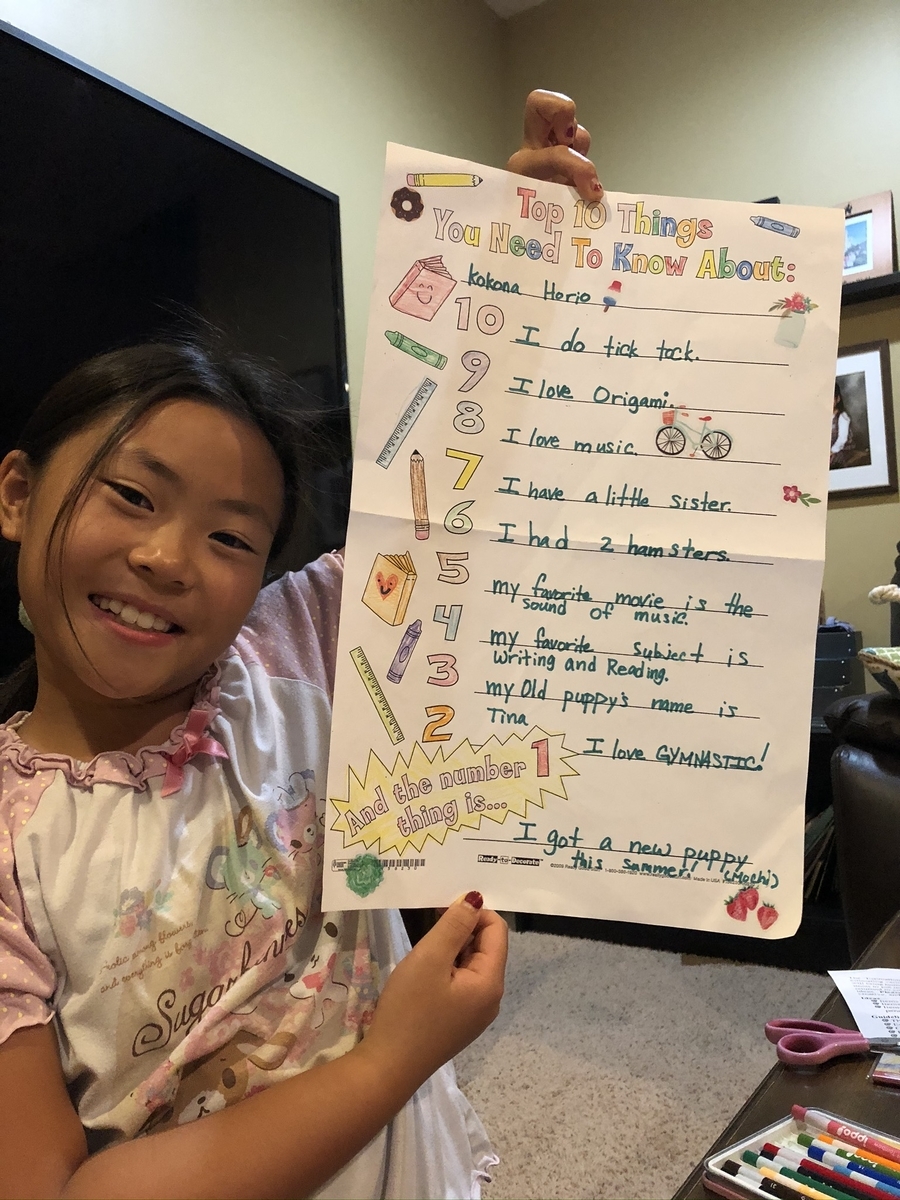 Top 10 Things
You Need To Know About:
Kokona Horio
10 I do tick tock.
9 I love Origami.
8 I love music.
7 I have a little sister.
6 I had 2 hamsters.
5 my favorite movie is the
sound of music.
4 my favorite subject is
Writing and Reading.
3 my Old puppy's name is
Tina
2 I love GYMNASTIC!
And the number 1
thing is...
I got a new puppy
this summer! (Mochi)
Ready-to-Decorate
Made in USA
and everything is
Sugar